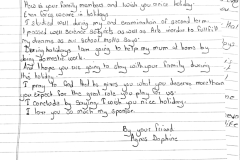 How is your family members and I wish you nice holiday.
Even long scores in holidays
I studied well during my end examination of second term.
I passed well Science subjects as well as Arts inorder to fulfill
my dreams as our school motto says.
During holidays I am going to help my mum at home by
doing domestic work.
And I hope you are going to stay with your family during
this holiday.
I pray to God that he gives you what you deserves more than
you expect for the great role you play for us.
I conclude by saying I wish you nice holidays.
I love you so much my sponsor.
By your friend.
Agnes Daphine